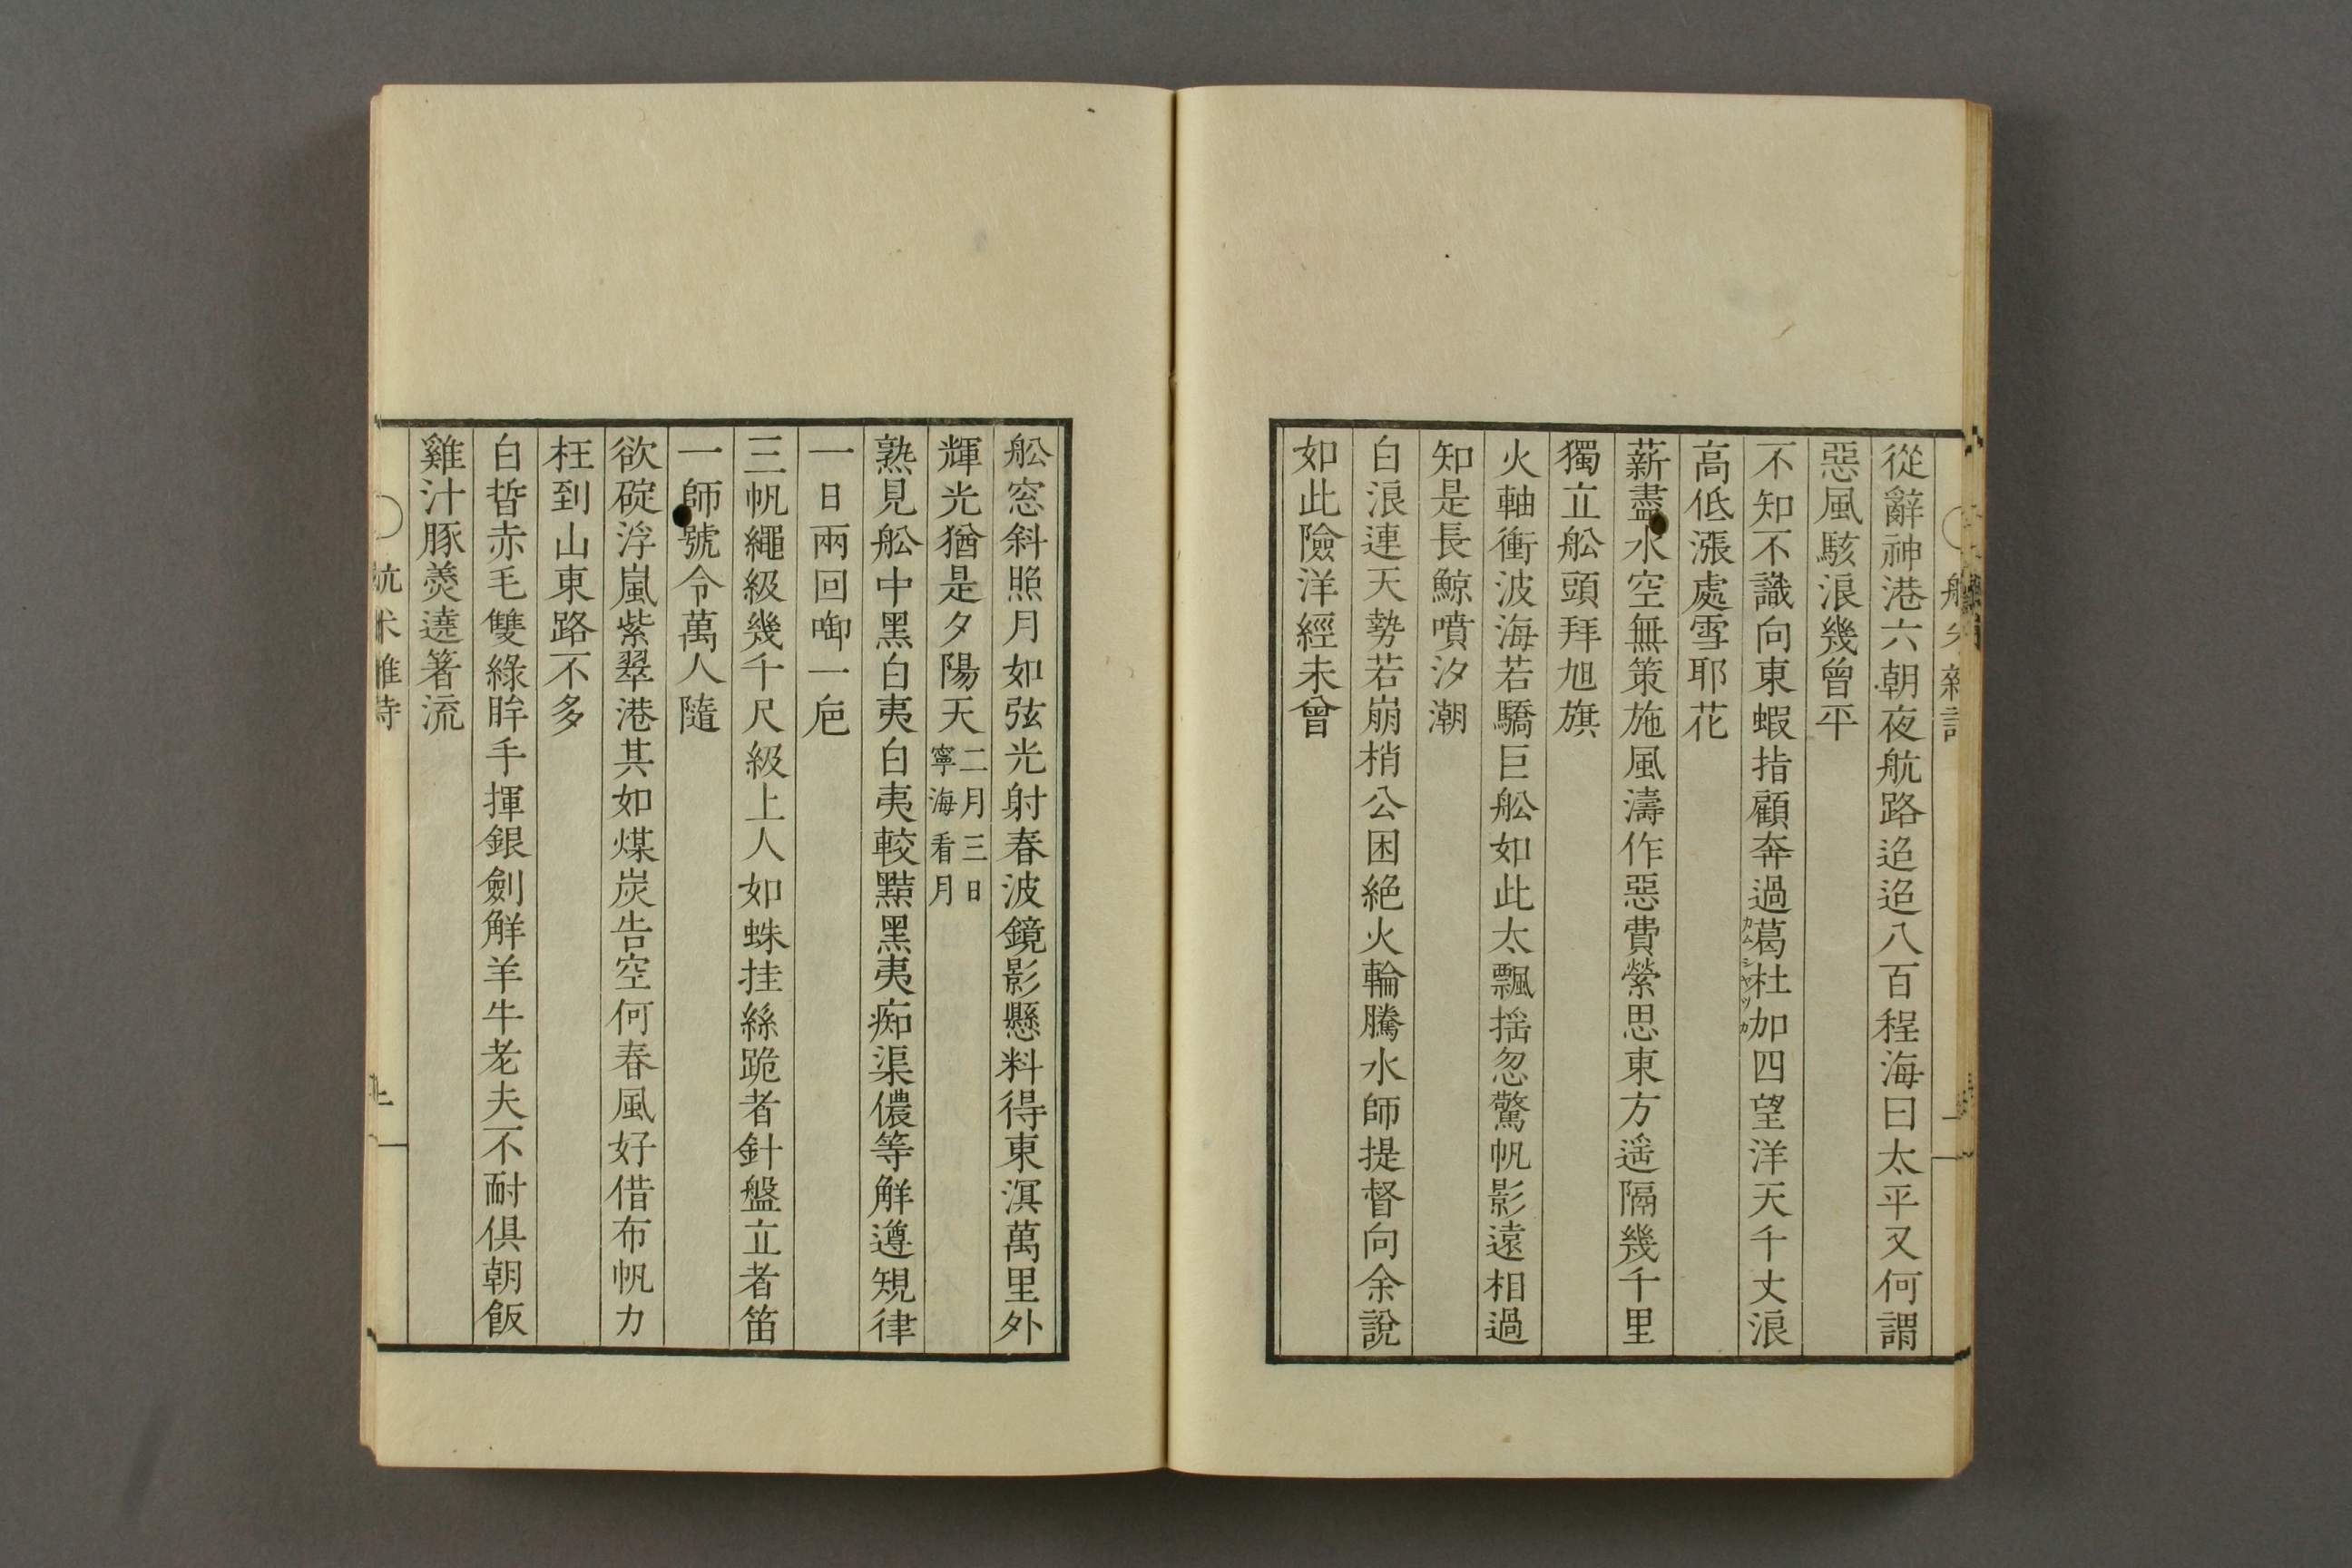 從辭神港六朝夜航路迢迢八百程海曰太平又何謂
惡風駭浪幾曾平
不知不識向東蝦指顧奔過葛杜加四望洋天千丈浪
カムシヤツカ
高低漲處雪耶花
薪盡水空無策施風濤作惡費縈思東方遥隔幾千里
獨立舩頭拜旭旗
火軸衝波海若驕巨舩如此太飄揺忽驚帆影遠相過
知是長鯨噴汐潮
白浪連天勢若崩梢公困絶火輪騰水師提督向余說
如此險洋經未曾
舩窓斜照月如弦光射春波鏡影懸料得東溟萬里外
輝光猶是夕陽天
二月三日
寧海看月
熟見舩中黑白夷白夷較黠黑夷痴渠儂等解遵規律
一日兩回啣一巵
三帆繩級幾千尺級上人如蛛挂絲跪者針盤立者笛
一師號令萬人隨
欲碇浮嵐紫翠港其如煤炭告空何春風好借布帆力
枉到山東路不多
白晳赤毛雙綠眸手揮銀劍解羊牛老夫不耐俱朝飯
雞汁豚羮遶箸流
航米雜詩